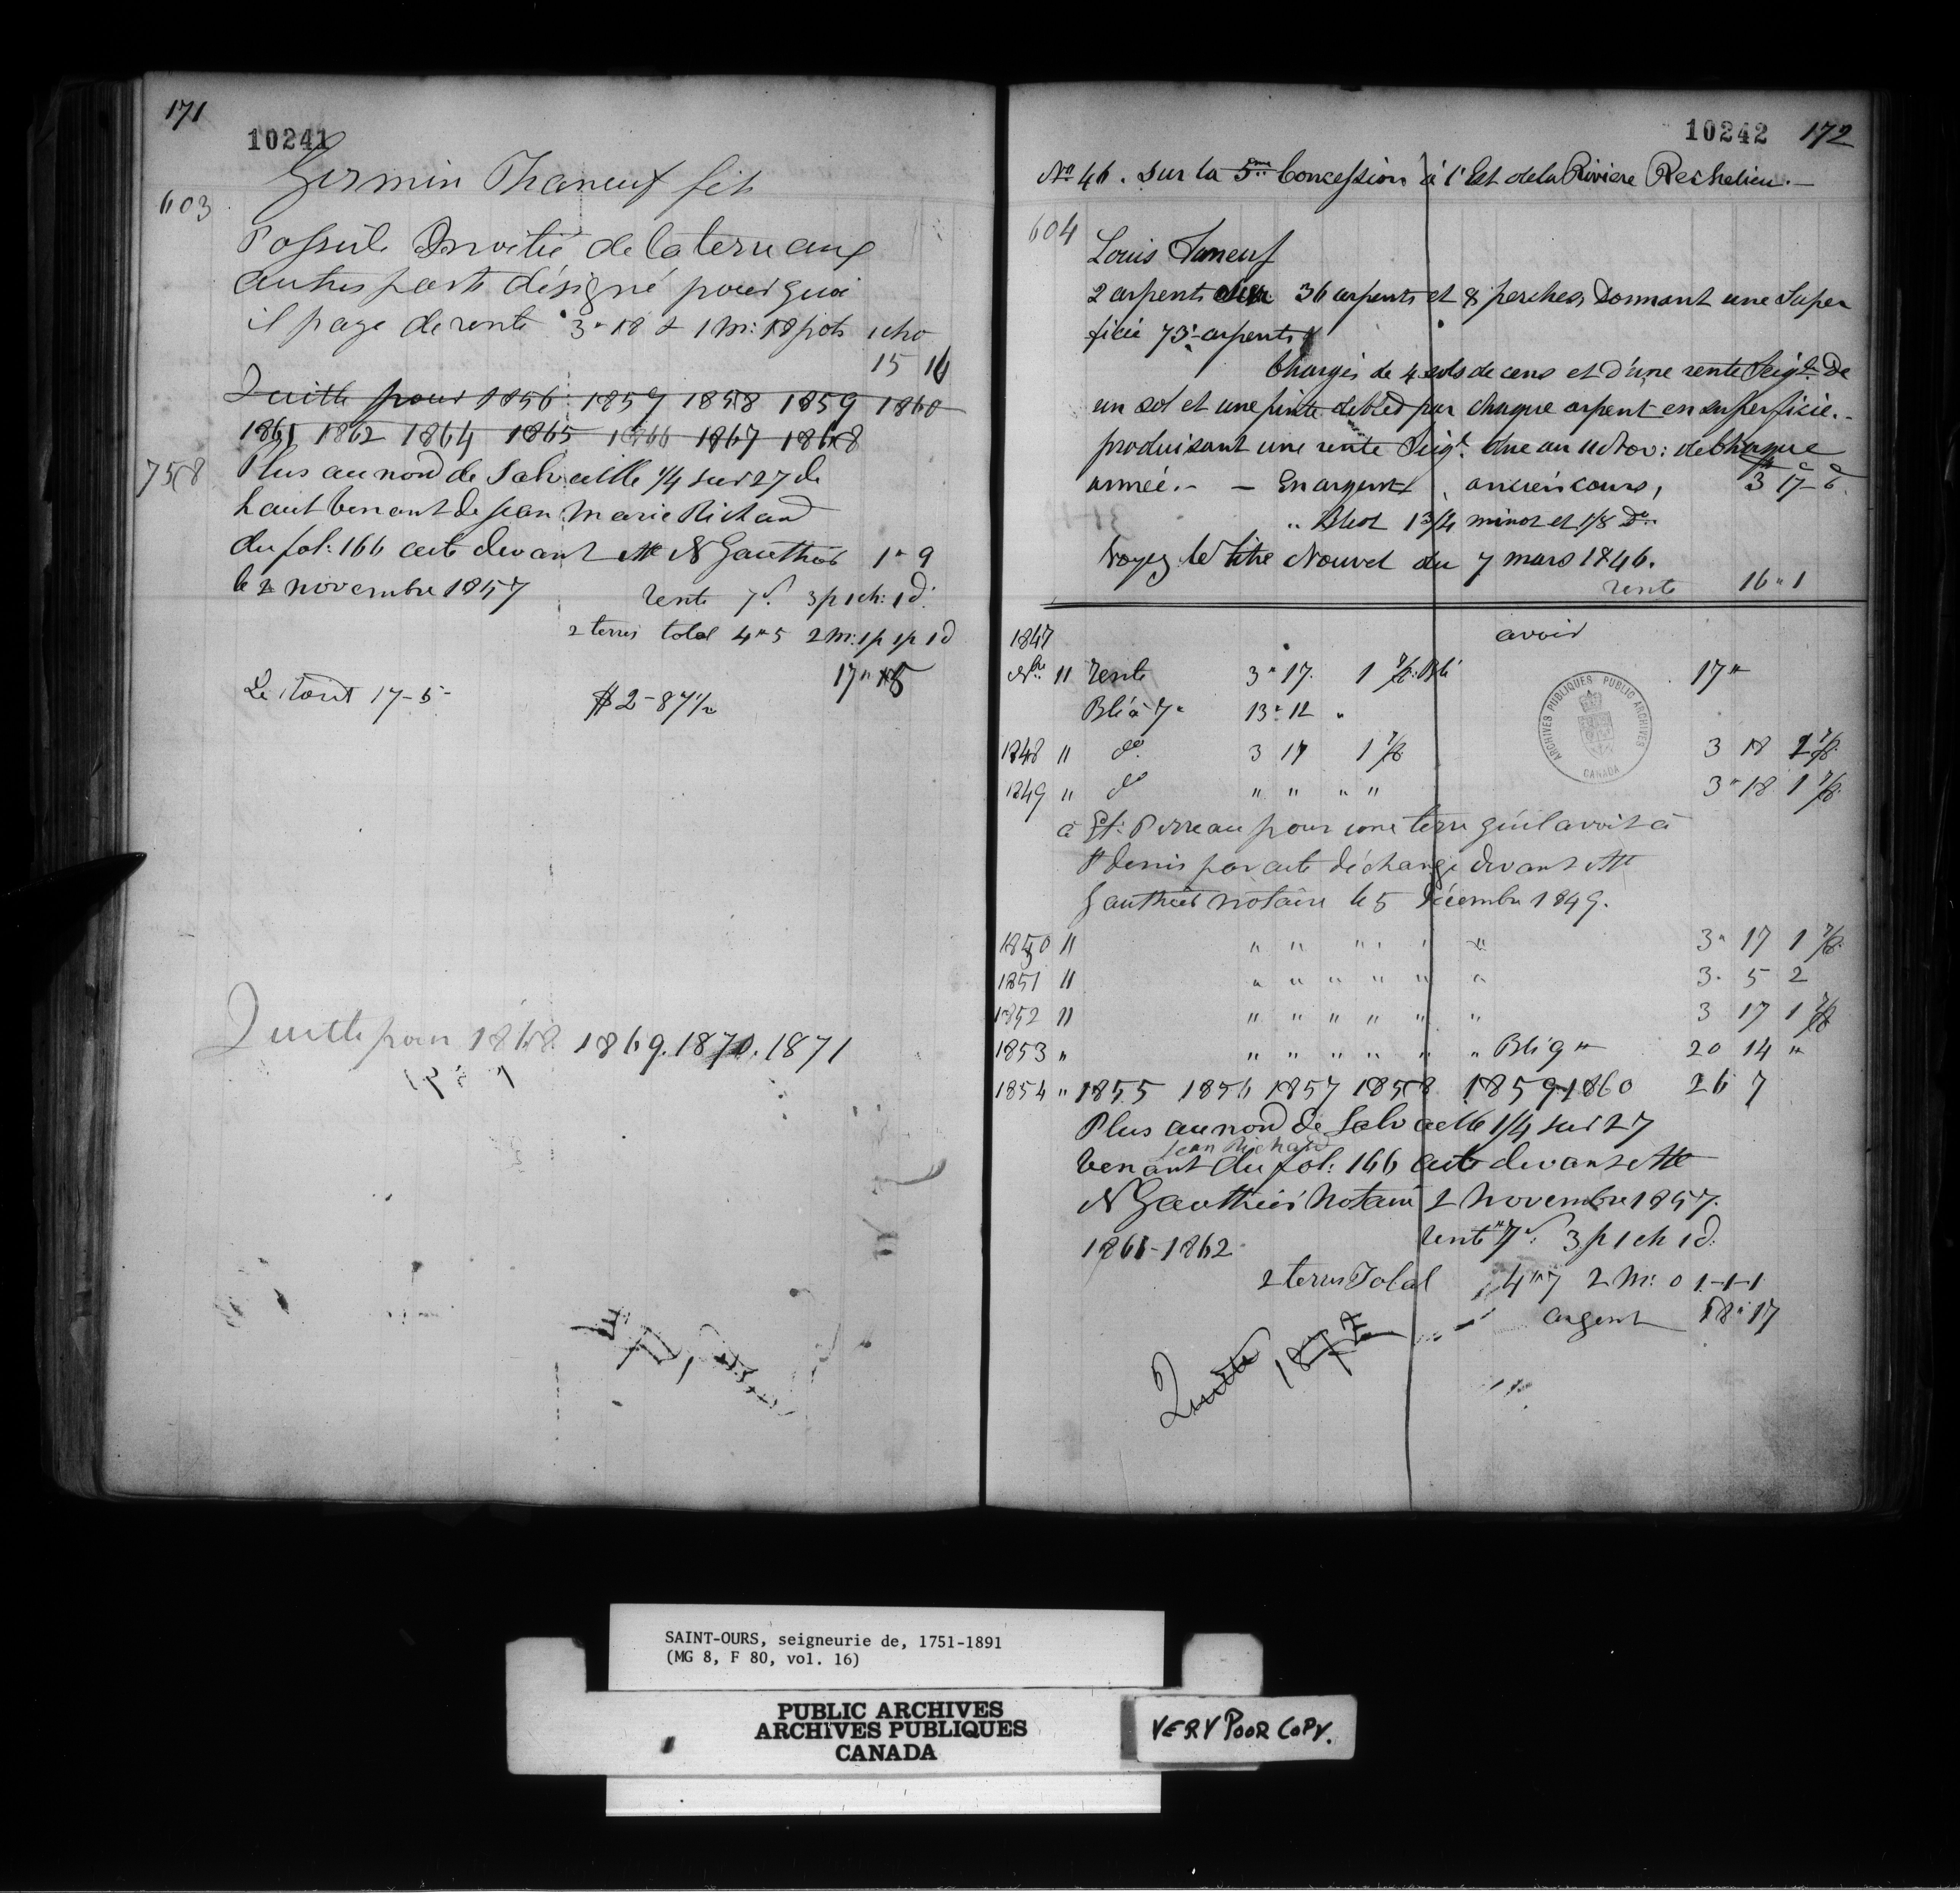 171
10241
Germin Phaneuf fils
603
Possède moitié de la terre aux
autres parts désigné pour quoi
il paye de rente 3" 18 & 1 m: 18 pots 1 cho
15 16
Quitte pour 1856 1857 1858 1859 1860
1861 1862 1864 1865 1866 1867 1868
758
Plus au nord de Salvaille 1/4 sur 27 de
haut venant de Jean Marie Richard
du fol: 166 acte devant Mte N Gauthier 1" 9
le 2 novembre 1857 rente 7s. 3p 1ch: 1d.
2 terres total 4" 5 2 m: 1p 1p 1d
17" 15
Le tout 17-5- $2-87½
Quitte pour 1868. 1869. 1870. 1871
10242 172
No 46. Sur la 5me Concession à l'Est de la Riviere Richelieu.—
604
Louis Faneuf
2 arpents sur 36 arpents et 8 perches Donnant une Super
ficie 73 arpents
Chargés de 4 sols de cens et d'une rente Seigle De
un sol et une pinte de bled par chaque arpent en superficie.-
produisant une rente Seigl. due au 11 Nov: de chaque
année.- — En argent, ancien cours, 3 17-6
" Bled 1 3/4 minot et 1/8 Do..
Voyez le titre Nouvel du 7 mars 1846.
rente 16" 1
1847 avoir
Nbre 11 rente 3" 17. 1 7/8: Blé 17"
Blé à 7" 13" 12 "
1848 11 do 3 17 1 7/8 3 18 1 7/8
1849 11 do " " " " 3" 18 1 7/8
à Et: Perreau pour une terre qu'il avoit à
St Denis par acte d'échange devant Mtte
Gauthier notaire le 5 Décembre 1849.
1850 11 " " " " " " 3" 17 1 7/8
1851 11 " " " " " " 3" 5 2
1852 11 " " " " " " 3 17 1 7/8
1853 " " " " " " " Blé 9" 20 14 "
1854 " 1855 1856 1857 1858 1859-1860 26 7
Plus au nord de Salvaille 1/4 sur 27
Jean Richard
venant du fol: 166 acte devant Mtte
N Gauthier Notaire 2 Novembre 1857.
rente "7s: 3p 1ch 1d.
1861-1862
2 terres Total 4"7 2 M: 0 1-1-1
argent 18" 17
Quitte 1872
ARCHIVES PUBLIQUES PUBLIC ARCHIVES
CANADA
SAINT-OURS, seigneurie de, 1751-1891
(MG 8, F 80, vol. 16)
PUBLIC ARCHIVES
ARCHIVES PUBLIQUES
CANADA
VERY POOR COPY.